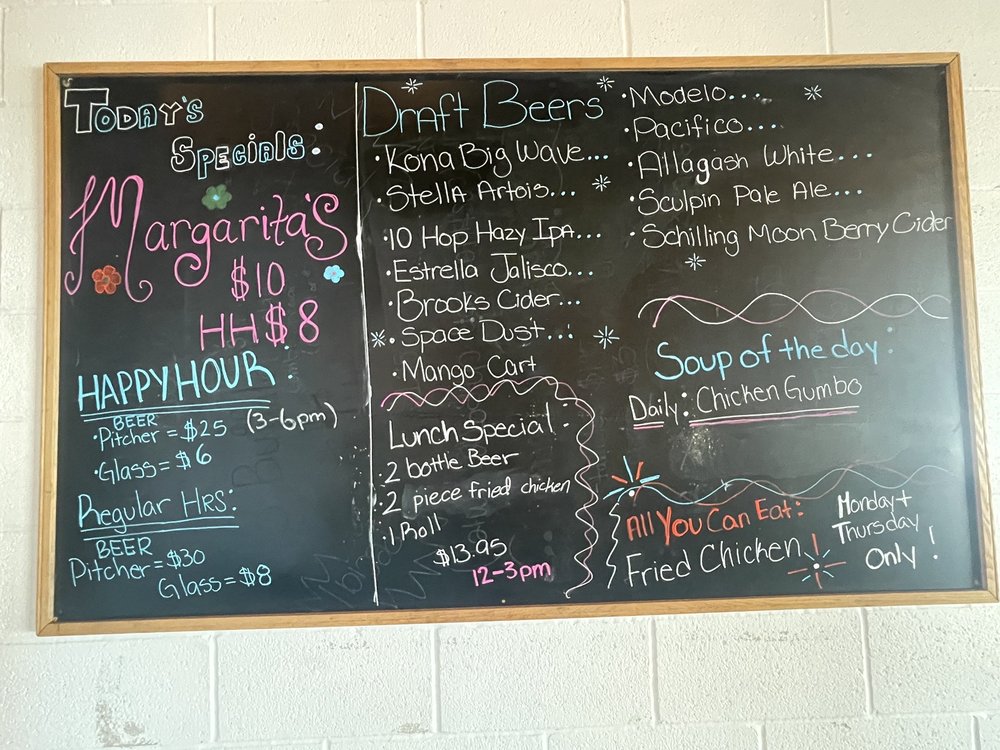 TODAY'S
SPECIALS:
Margarita'S
$10
HH $8
HAPPY HOUR:
(3-6pm)
BEER
•Pitcher = $25
•Glass = $6
Regular Hrs:
BEER
Pitcher = $30
Glass = $8
Draft Beers
•Kona Big Wave...
•Stella Artois...
•10 Hop Hazy Ipa...
•Estrella Jalisco...
•Brooks Cider...
•Space Dust...
•Mango Cart
Lunch Special:
•2 bottle Beer
•2 piece fried chicken
•1 Roll
$13.95
12-3pm
•Modelo...
•Pacifico...
•Allagash White...
•Sculpin Pale Ale...
•Schilling Moon Berry Cider
Soup of the day:
Daily: Chicken Gumbo
All You Can Eat:
Fried Chicken
Monday +
Thursday
Only!